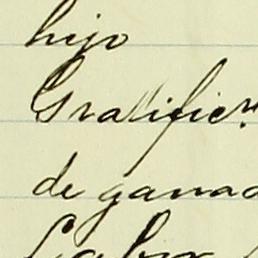 hijo
Gratificn
de ganad